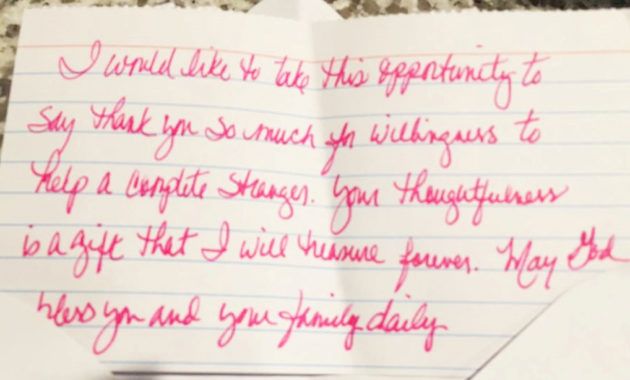 I would like to take this opportunity to
say thank you so much for willingness to
help a complete stranger. Your thoughtfulness
is a gift that I will treasure forever. May God
bless you and your family daily